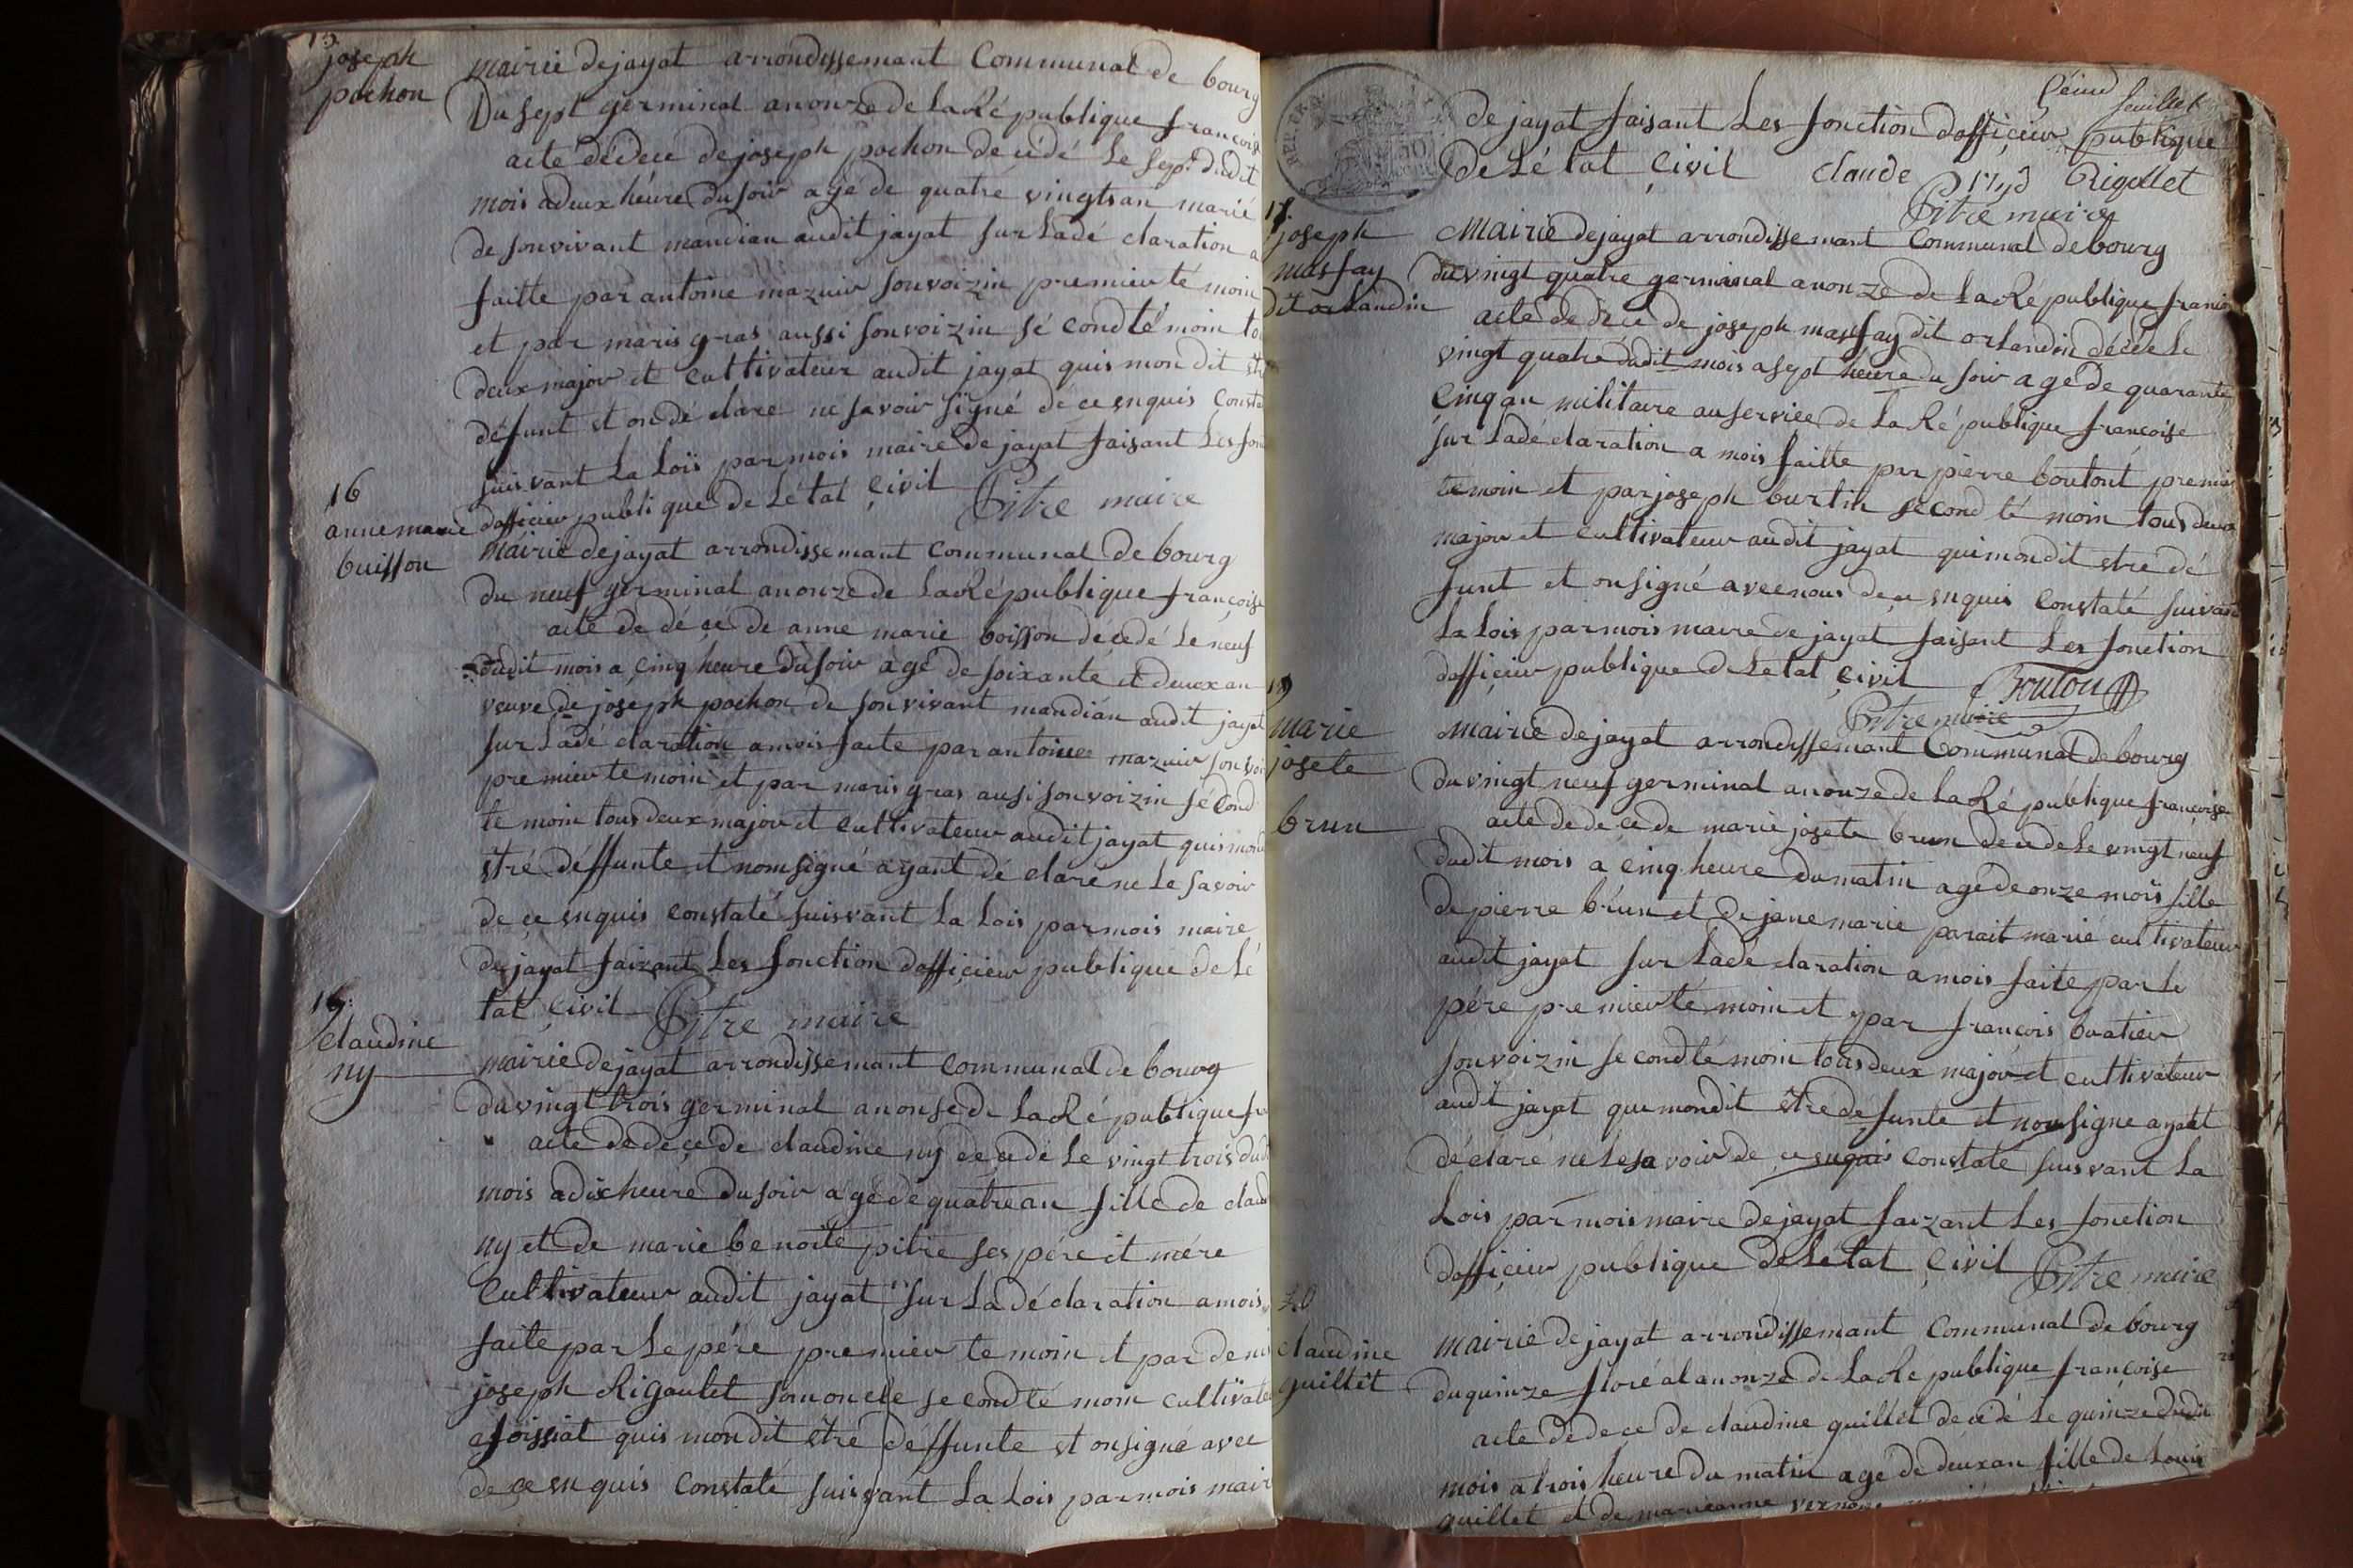 15
joseph
pochon
mairie dejayat arrondissemant Communal de bourg
Du sept germinal anonze de LaRé publique francois
acte dedece de joseph pochon decédé Le sept dudit
mois adeux héure dusoir agé de quatre vingts an marié
de sonvivant mandian audit jayat sur Ladé claration a
faitte par antoine mazuir sonvoizin premier té moin
et par maris gras aussi sonvoizin sé condté moin to
deux major et cultivateur audit jayat quis mon dit etr
défunt et ondé clare ne savoir signé de ce enquis Consta
suis vant La Lois par mois maire de jayat faisant Les fon
dofficier publi que de Létat Çivil Pitre maire
16
anne marie
buisson
mairie dejayat arrondissemant Communal De bourg
du neuf germinal anonze de LaRépublique françoise
acte de dé cé de anne marie boisson décedé Le neuf
dudit mois a cinq heure Dusoir agé de soixante et deuxan
veuve de joseph pochon de sonvivant mandian audit jayat
sur Ladé claration amois faite par antoine mazuir sonvoi
premier temoin et par maris gras ausi sonvoizin sé cond
te moin tous deux major et cultivateur audit jayat quis mond
etré déffunte et nomsigné ayant dé claré ne Le savoir
de ce enquis constaté suisvant La Lois parmois maire
de jayat faizant Les fonction dofficier publique de Lé
tat Çivil Pitre maire
claudine
ny
mairie dejayat arrondissemant communal de bourg
du vingt trois germinal anonse de LaRé publique fra
acte de de ce de claudine ny decedé Le vingt trois dud
mois adix heure Dusoir agé de quatrean fille de claud
ny et de marie benoite pitre ses pére et mére
cultivateur audit jayat sur La déclaration amois
faite par Le pére premier te moin et par deni
joseph Rigaulet sononcle se cond té moin cultivate
afoissiat quis mondit être déffunte et onsigné avec
de ce en quis Constaté suisvant La Lois parmois mair
feuillet
de jayat faisant Les fonction dofficier publique
de Lé tat Çivil claude nyd Rigollet
Pitre maire
joseph
masfay
dit orlandin
Mairie dejayat arrondissemant Communal debourg
du vingt quatre germinal anonze de LaRe publique francoi
acte de dece de joseph massfay dit orlandin décédé Le
vingt quatre dudit mois a sept heure du soir agé De quarante
Cinqan militaire au service de La Ré publique françoise
sur Ladé claration a mois faitte par pierre boutont premier
témoin et par joseph burtin second té moin tous deux
major et cultivateur audit jayat qui mondit etre dé
funt et onsigné avecnous de ce enquis Constaté suivant
La Lois parmois maire de jayat faisant Les fonction
dofficier publique de Letat Çivil Bouton
Pitre maire
19
marie
josete
brun
mairie de jayat arrondissemant Communal de bourg
du vingt neuf germinal anonze de LaRé publique françoise
acte de de ce de marie josete brun decede Le vingt neuf
dudit mois a cinq heure dumatin agé de onze mois fille
de pierre brun et de jane marie parait marié cultivateur
audit jayat sur Ladé claration amois faite par Le
pére premier té moin et par francois buatier
sonvoizin se condté moin tous deux major et cultivateur
audit jayat qui mondit être defunte et nonsigne ayant
déclaré ne Le savoir de ce enquis constaté suisvant La
Lois parmois maire dejayat faizant Les fonction
dofficier publique de Létat Çivil Pitre maire
20
claudine
guillet
mairie de jayat arrondissemant Communal de bourg
du quinze floréal anonze de LaRé publique françoise
acte de de ce de claudine guillet decédé Le quinze dudit
mois a trois heure du matin agé de deuxan fille de Louis
guillet et de marieanne